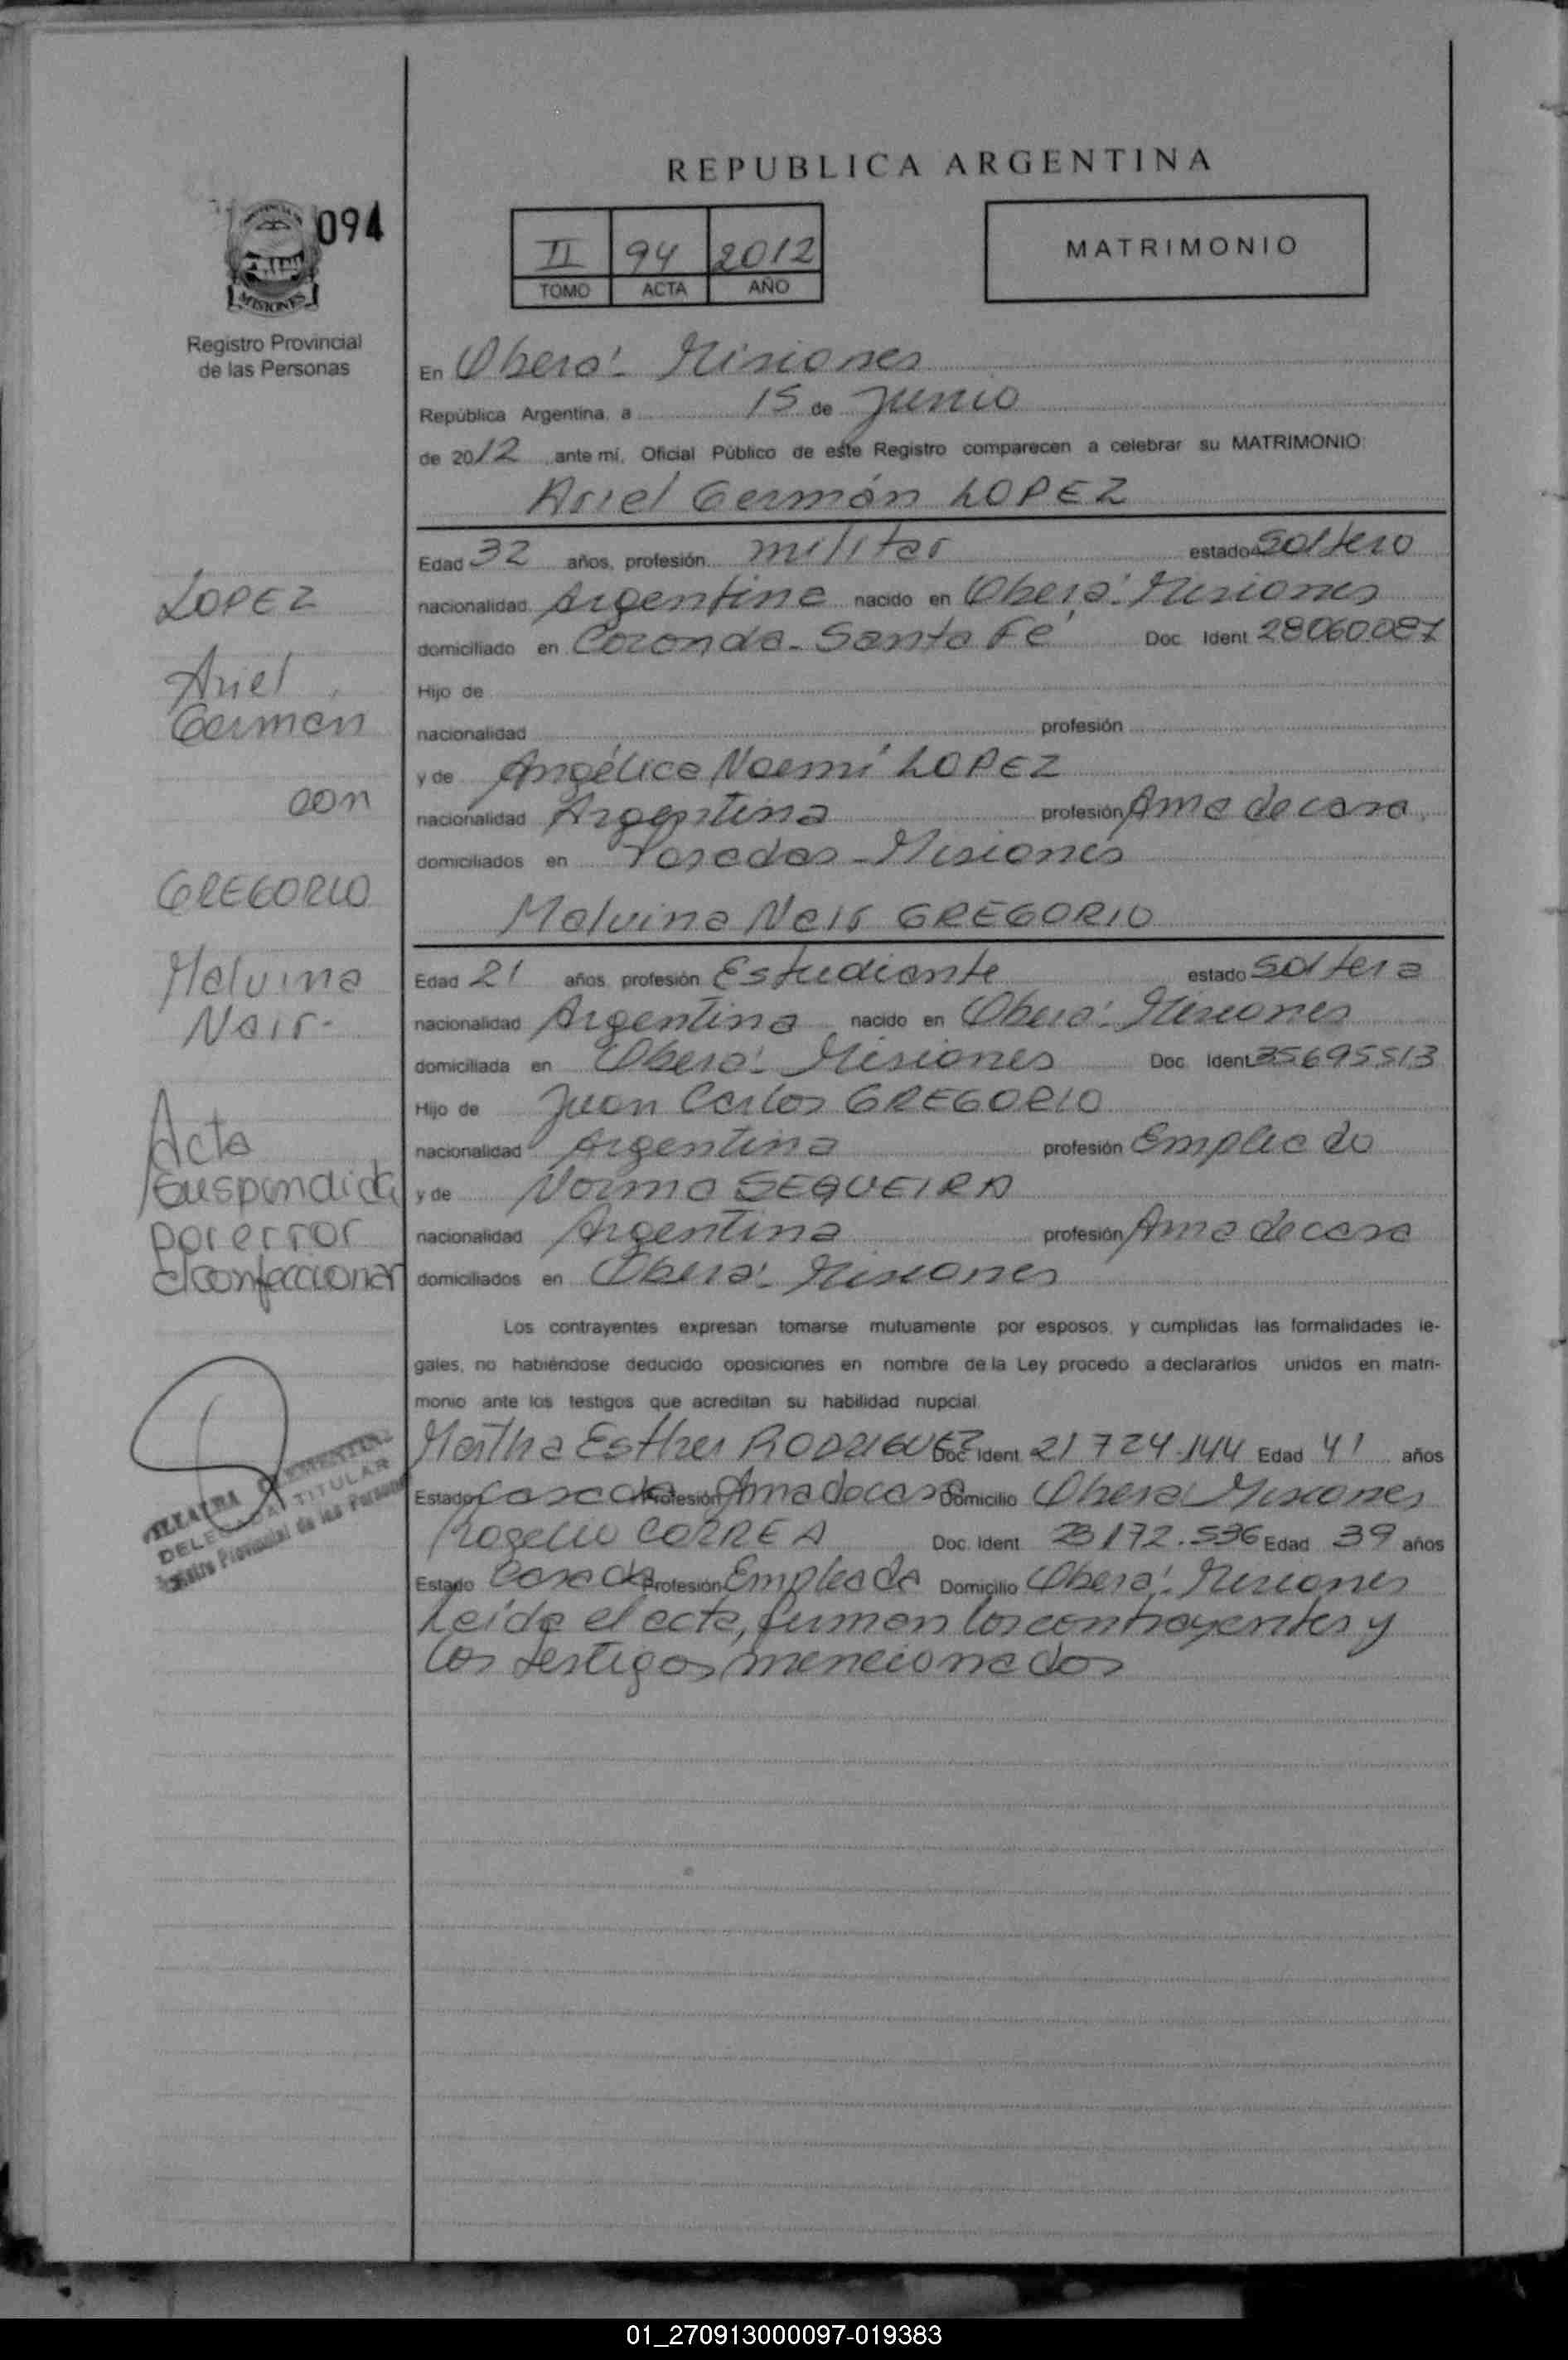 REPUBLICA ARGENTINA
094
MISIONES
Registro Provincial
de las Personas
II 94 2012
TOMO ACTA AÑO
MATRIMONIO
En Oberá - Misiones
República Argentina, a 15 de Junio
de 2012 ante mí, Oficial Público de este Registro comparecen a celebrar su MATRIMONIO:
Ariel Germán LOPEZ
Edad 32 años, profesión militar estado Soltero
nacionalidad Argentina nacido en Oberá - Misiones
domiciliado en Coronda - Santa Fé Doc. Ident. 28060087
Hijo de
nacionalidad profesión
y de Angélica Noemí LOPEZ
nacionalidad Argentina profesión Ama de casa
domiciliados en Posadas - Misiones
Malvina Nair GREGORIO
Edad 21 años, profesión Estudiante estado Soltera
nacionalidad Argentina nacido en Oberá - Misiones
domiciliada en Oberá - Misiones Doc. Ident. 35.695.513
Hijo de Juan Carlos GREGORIO
nacionalidad Argentina profesión Empleado
y de Norma SEQUEIRA
nacionalidad Argentina profesión Ama de casa
domiciliados en Oberá - Misiones
Los contrayentes expresan tomarse mutuamente por esposos, y cumplidas las formalidades le-
gales, no habiéndose deducido oposiciones en nombre de la Ley procedo a declararlos unidos en matri-
monio ante los testigos que acreditan su habilidad nupcial.
Martha Esther RODRIGUEZ Doc. Ident. 21724.144 Edad 41 años
Estado Casada Profesión Ama de casa Domicilio Oberá Misiones
Rogelio CORREA Doc. Ident. 23172.536 Edad 39 años
Estado Casado Profesión Empleado Domicilio Oberá - Misiones
Leída el acta, firman los contrayentes y
los testigos mencionados
LOPEZ
Ariel
German
con
GREGORIO
Malvina
Nair-
Acta
Suspendida
por error
al confeccionar
DELEGADA TITULAR
Provincial de las Personas
01_270913000097-019383